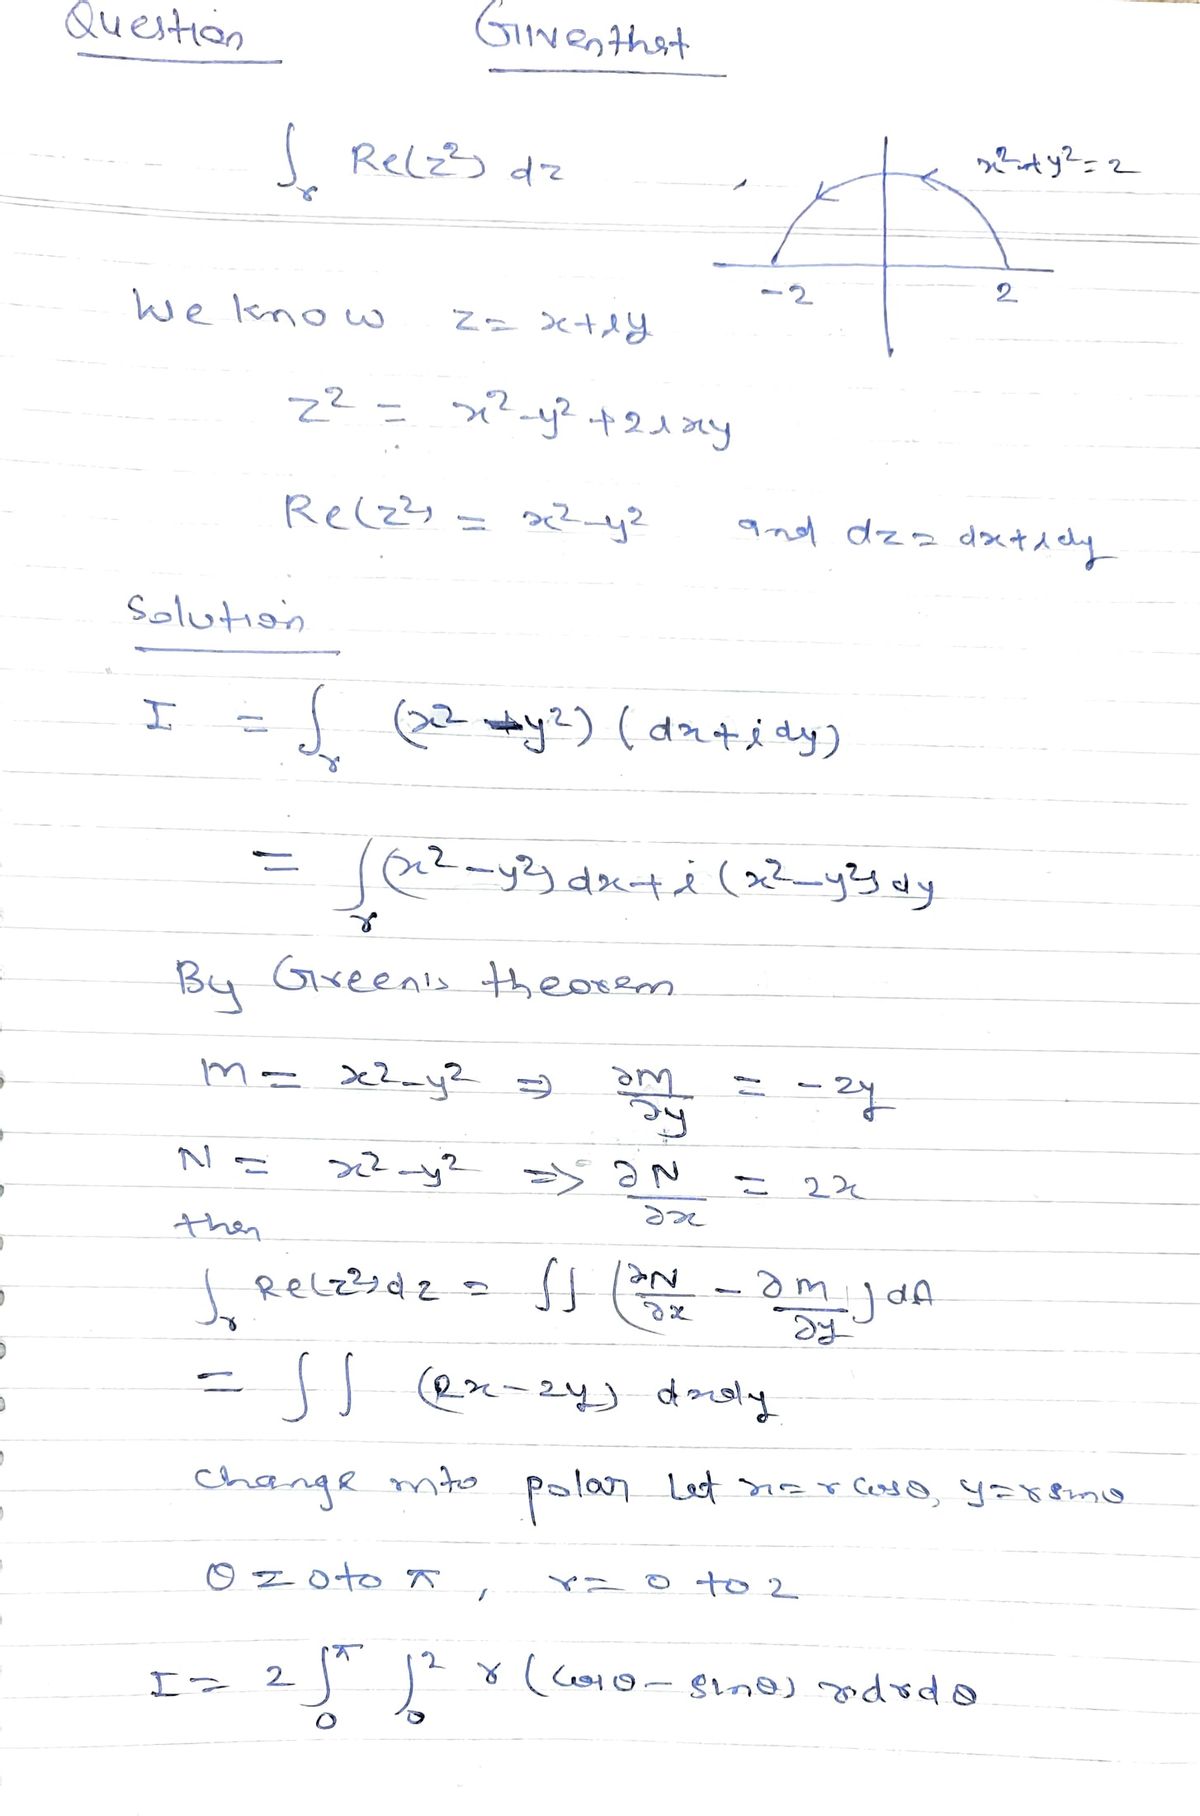 Question Given that
∫_γ Re(z²) dz
x²+y²=2
-2 2
We know z = x+iy
z² = x²-y²+2ixy
Re(z²) = x²-y² and dz = dx+idy
Solution
I = ∫_γ (x²-y²) (dx+idy)
= ∫_γ (x²-y²) dx + i (x²-y²) dy
By Green's theorem
M = x²-y² ⇒ ∂M/∂y = -2y
N = x²-y² ⇒ ∂N/∂x = 2x
then
∫_γ Re(z²) dz = ∫∫ (∂N/∂x - ∂M/∂y) dA
= ∫∫ (2x-2y) dxdy
change into polar Let x = r cosθ, y = r sinθ
θ = 0 to π, r = 0 to 2
I = 2 ∫₀^π ∫₀² r (cosθ - sinθ) r dr dθ